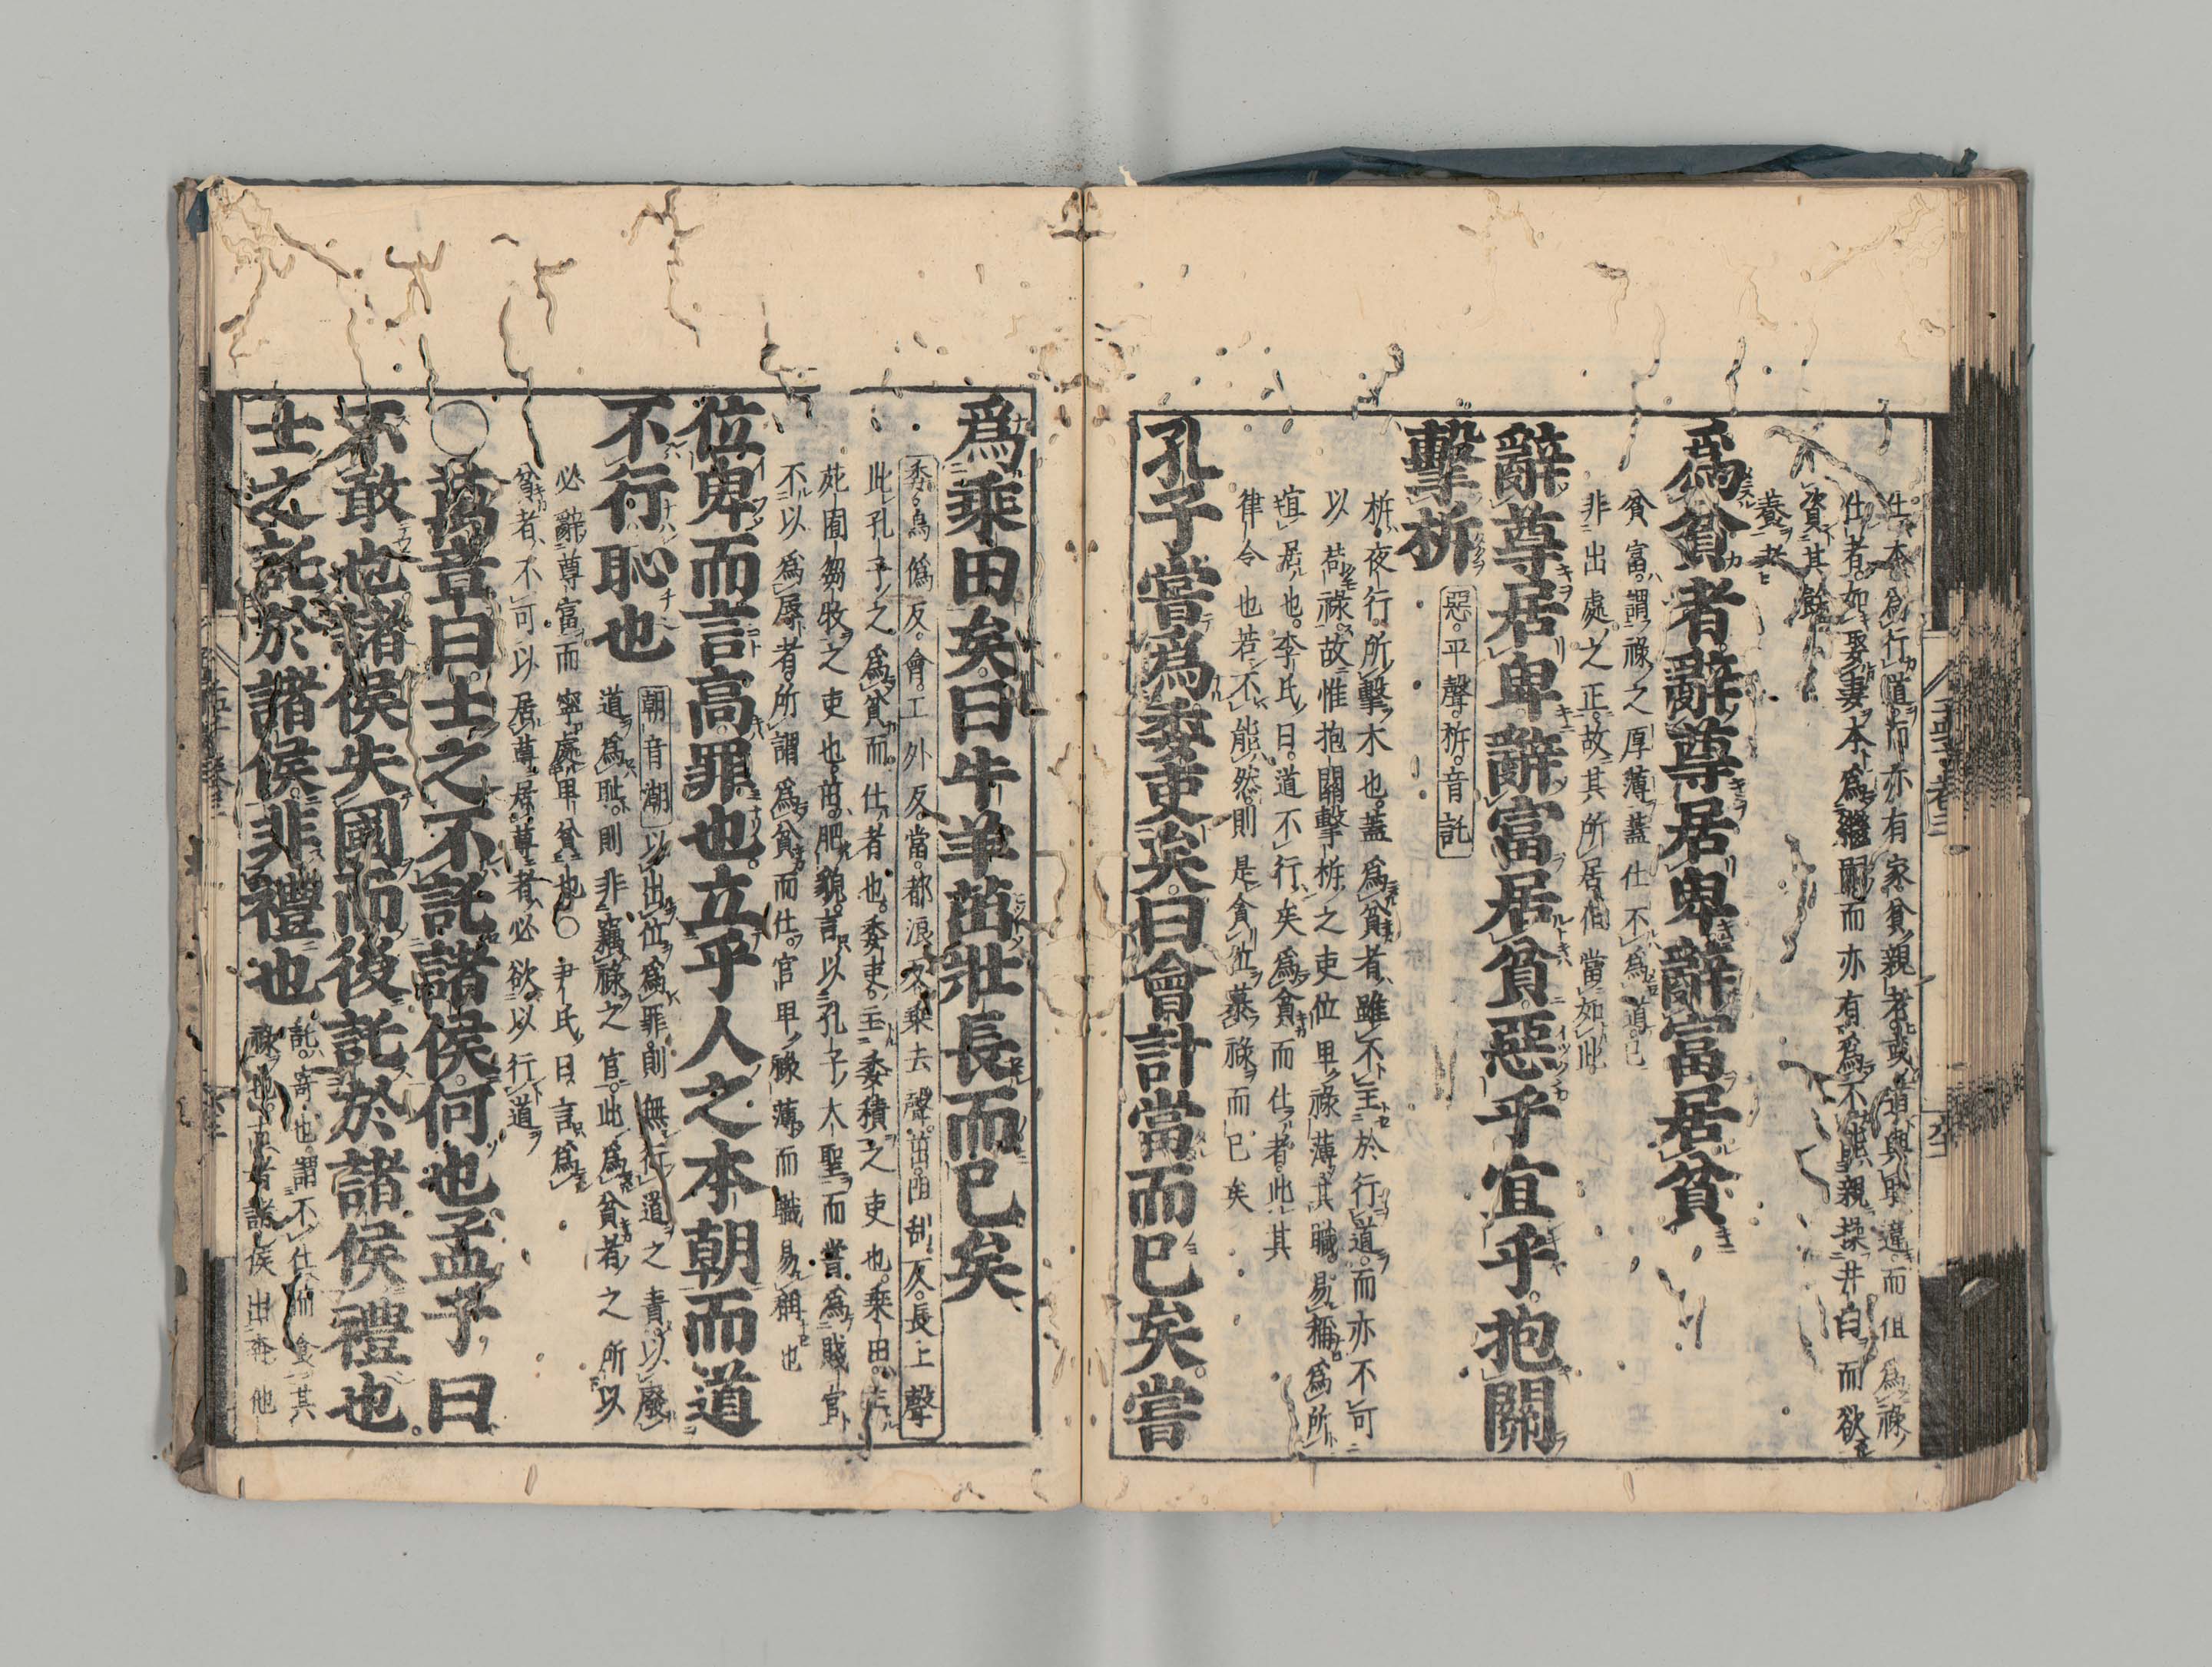 仕本爲行道而亦有家貧親老或道與時違而但爲祿
仕者如娶妻本爲繼嗣而亦有爲不能親操井臼而欲
資其餽養者
爲貧者辭尊居卑辭富居貧
貧富謂祿之厚薄蓋仕不爲道已
非出處之正故其所居但當如此
辭尊居卑辭富居貧惡乎宜乎抱關
擊柝
惡平聲柝音託
柝夜行所擊木也蓋爲貧者雖不主於行道而亦不可
以苟祿故惟抱關擊柝之吏位卑祿薄其職易稱爲所
宜居也李氏曰道不行矣爲貧而仕者此其
律令也若不能然則是貪位慕祿而已矣
孔子嘗爲委吏矣曰會計當而已矣嘗
爲乘田矣曰牛羊茁壯長而已矣
委烏僞反會工外反當都浪反乘去聲茁阻刮反長上聲
此孔子之爲貧而仕者也委吏主委積之吏也乘田主
苑囿芻牧之吏也茁肥貌言以孔子大聖而嘗爲賤官
不以爲辱者所謂爲貧而仕官卑祿薄而職易稱也
位卑而言高罪也立乎人之本朝而道
不行恥也
朝音潮
以出位爲罪則無行道之責以廢
道爲恥則非竊祿之官此爲貧者之所以
必辭尊富而寧處卑貧也○尹氏曰言爲
貧者不可以居尊居尊者必欲以行道
○萬章曰士之不託諸侯何也孟子曰
不敢也諸侯失國而後託於諸侯禮也
士之託於諸侯非禮也
託寄也謂不仕而食其
祿也古者諸侯出奔他